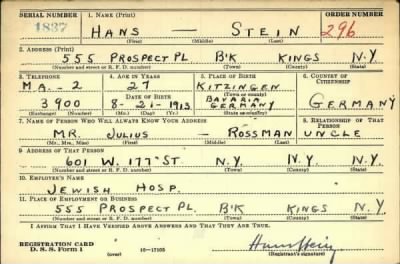 SERIAL NUMBER 1. NAME (Print) ORDER NUMBER
1837 HANS — STEIN 296
(First) (Middle) (Last)
2. ADDRESS (Print)
555 PROSPECT PL B'K KINGS N.Y.
(Number and street or R. F. D. number) (Town) (County) (State)
3. TELEPHONE 4. AGE IN YEARS 5. PLACE OF BIRTH 6. COUNTRY OF CITIZENSHIP
MA.-2 27 KITZINGEN
DATE OF BIRTH (Town or county)
3900 8-21-1913 BAVARIA GERMANY GERMANY
(Exchange) (Number) (Mo.) (Day) (Yr.) (State or country)
7. NAME OF PERSON WHO WILL ALWAYS KNOW YOUR ADDRESS 8. RELATIONSHIP OF THAT PERSON
MR. JULIUS — ROSSMAN UNCLE
(Mr., Mrs., Miss) (First) (Middle) (Last)
9. ADDRESS OF THAT PERSON
601 W. 177 ST. N.Y. N.Y. N.Y.
(Number and street or R. F. D. number) (Town) (County) (State)
10. EMPLOYER'S NAME
JEWISH HOSP.
11. PLACE OF EMPLOYMENT OR BUSINESS
555 PROSPECT PL B'K KINGS N.Y.
(Number and street or R. F. D. number) (Town) (County) (State)
I AFFIRM THAT I HAVE VERIFIED ABOVE ANSWERS AND THAT THEY ARE TRUE.
REGISTRATION CARD
D. S. S. Form 1 (over) 16—17105 Hans Stein
(Registrant's signature)